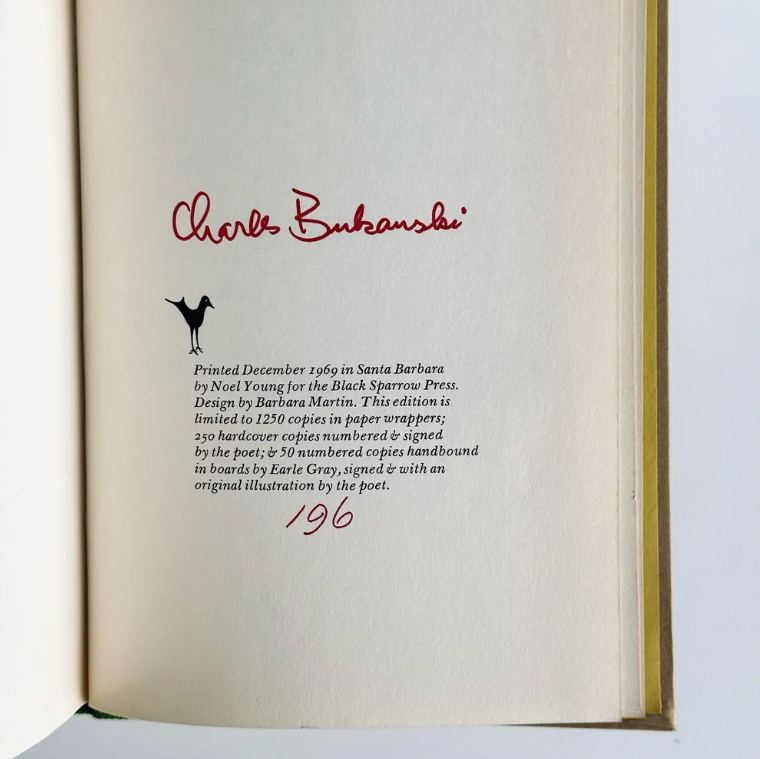 Charles Bukowski
Printed December 1969 in Santa Barbara
by Noel Young for the Black Sparrow Press.
Design by Barbara Martin. This edition is
limited to 1250 copies in paper wrappers;
250 hardcover copies numbered & signed
by the poet; & 50 numbered copies handbound
in boards by Earle Gray, signed & with an
original illustration by the poet.
196